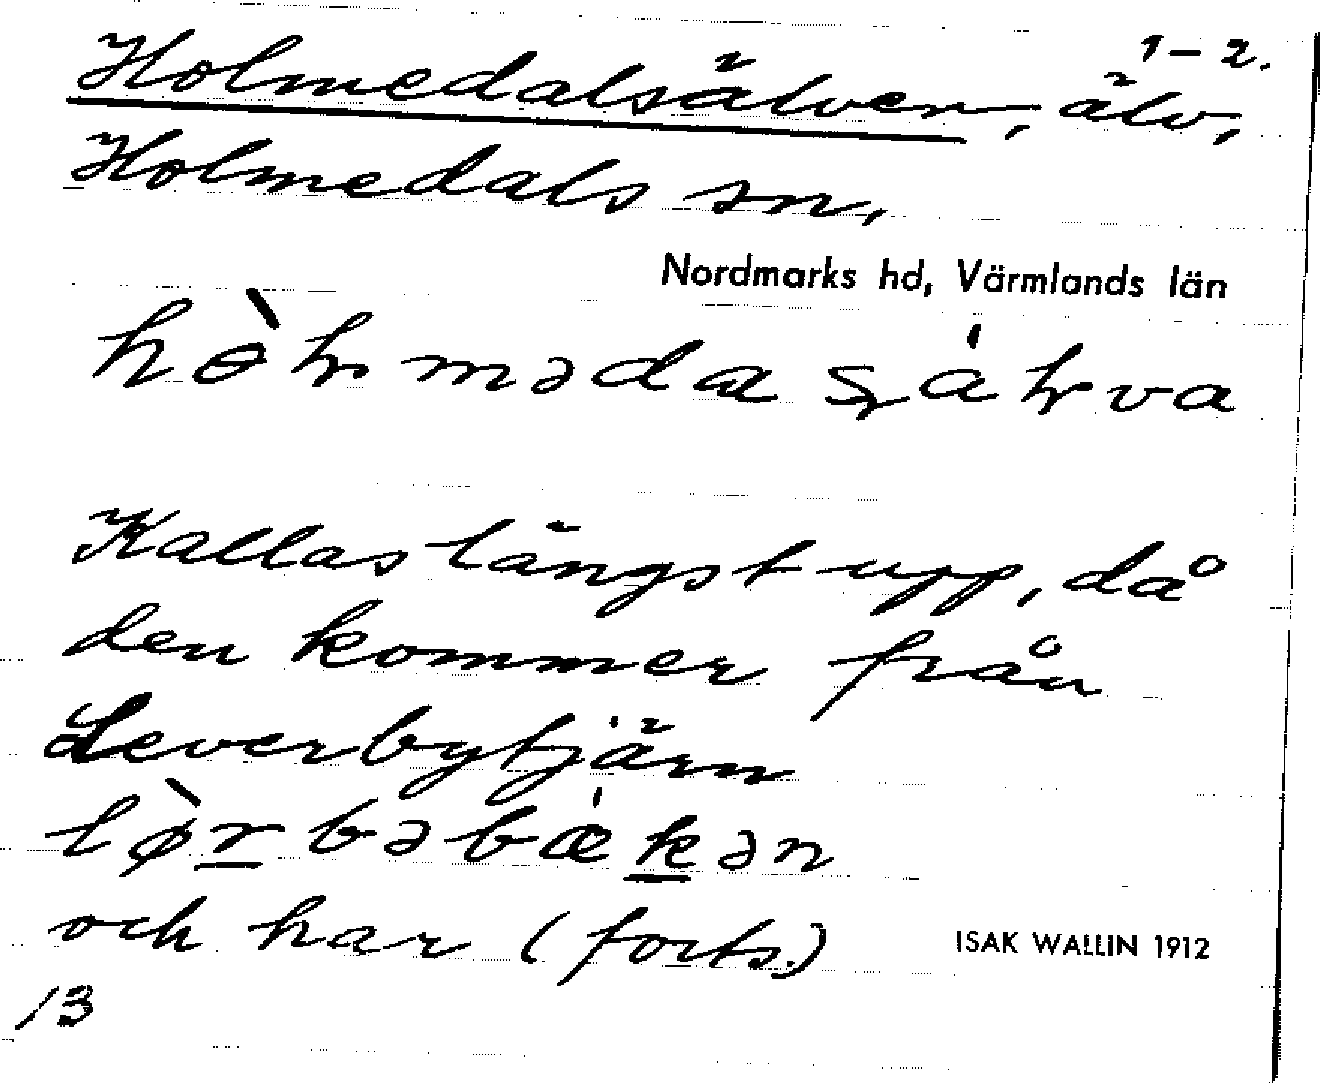 1–2.
Holmedalsälven, älv,
Holmedals sn.
Nordmarks hd, Värmlands län
Kallas längst upp, då
den kommer från
Leverbytjärn
och har (forts.)
ISAK WALLIN 1912
13